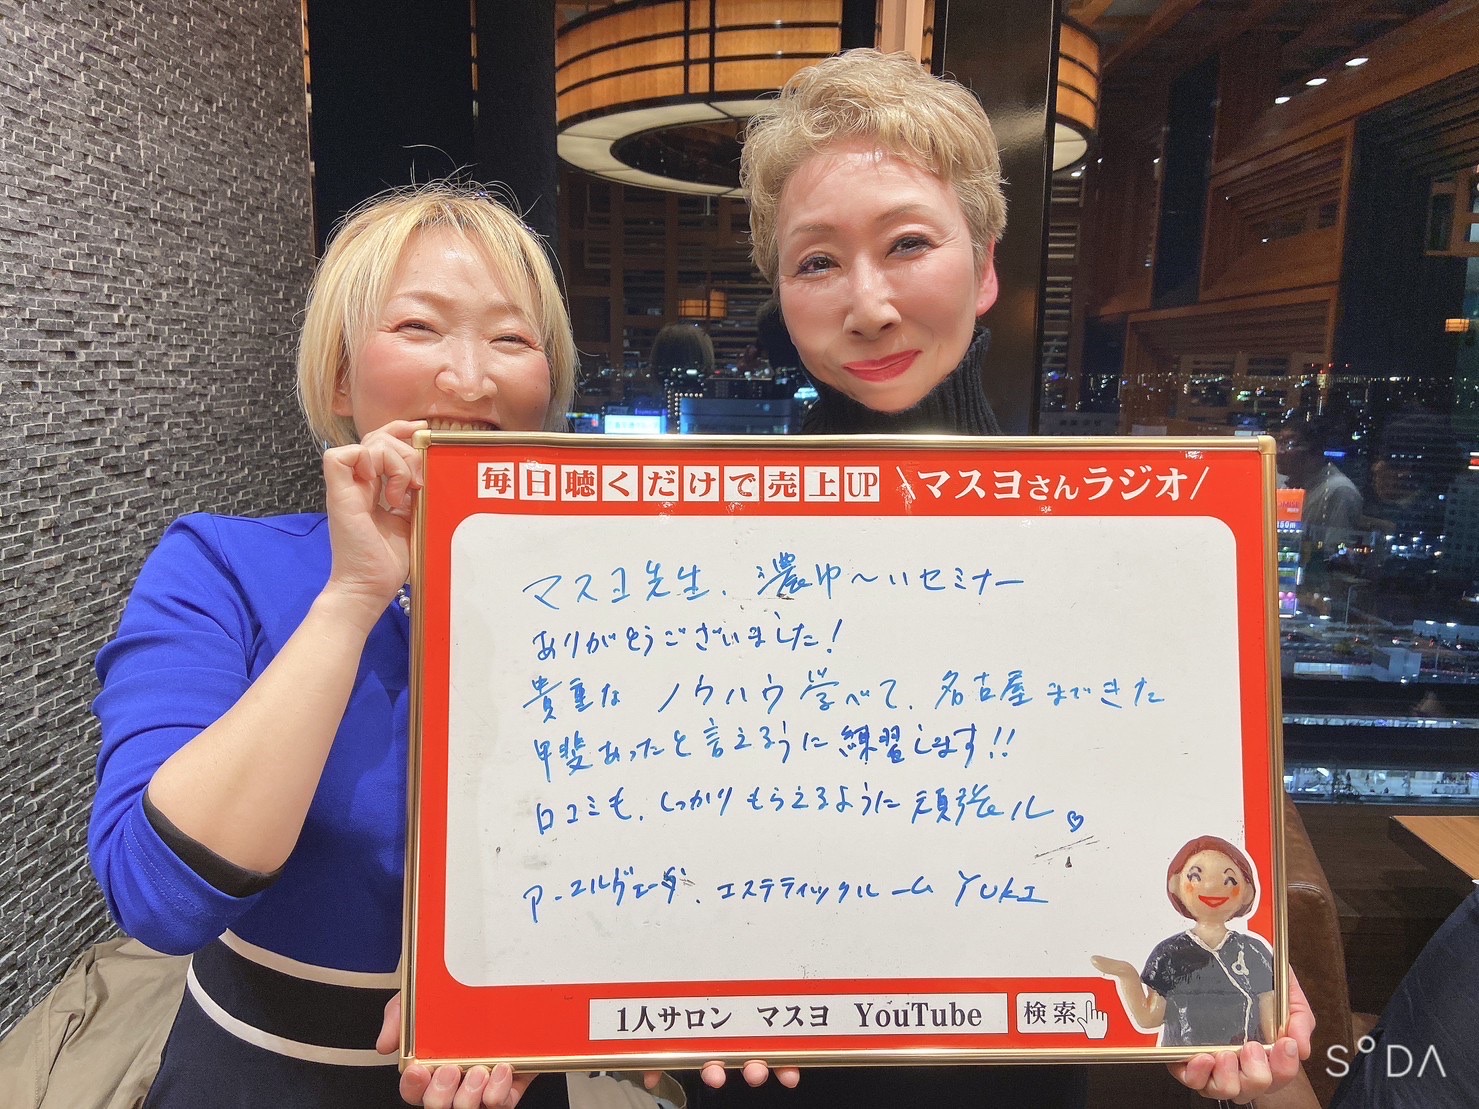 毎日聴くだけで売上UP \マスヨさんラジオ/
マスヨ先生、濃ゆ〜いセミナー
ありがとうございました!
貴重なノウハウ学べて、名古屋まできた
甲斐あったと言えるように練習します!!
口コミも、しっかりもらえるように頑張ル♡
アーユルヴェーダ、エステティックルーム YUKI
1人サロン マスヨ YouTube 検索
SODA